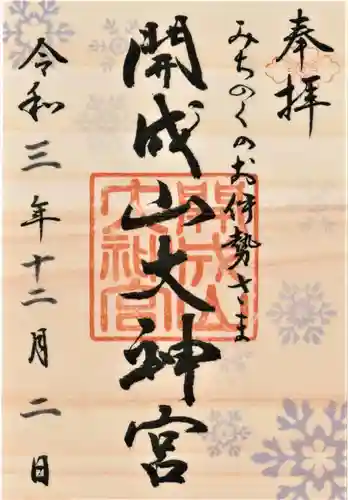 奉拝
みちのくのお伊勢さま
開成山大神宮
令和三年十二月二日
開成山大神宮